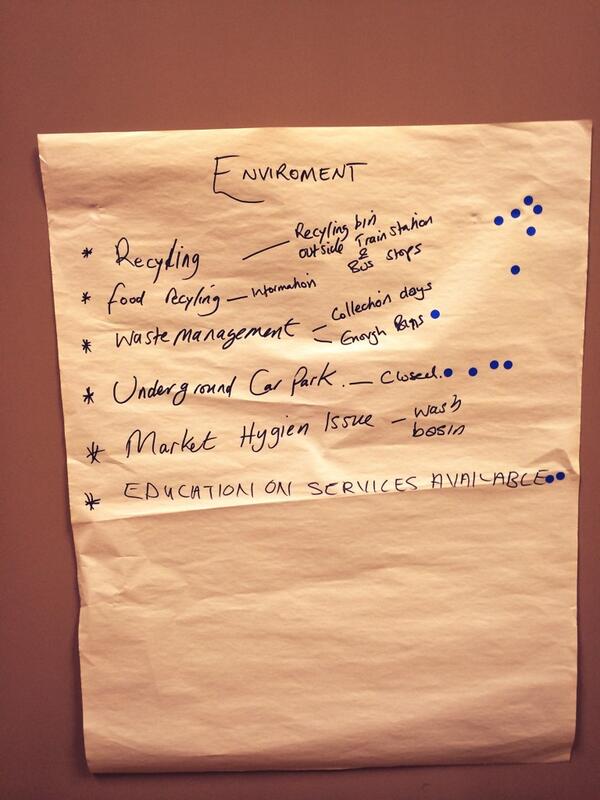 ENVIROMENT
* Recycling — Recyling bin
outside Train station
&
Bus stops
* food recyling — Information
* Waste management — Collection days
— Enough Bins
* Underground Car Park. — Closed.
* Market Hygien Issue — wash
basin
* EDUCATION ON SERVICES AVAILABLE